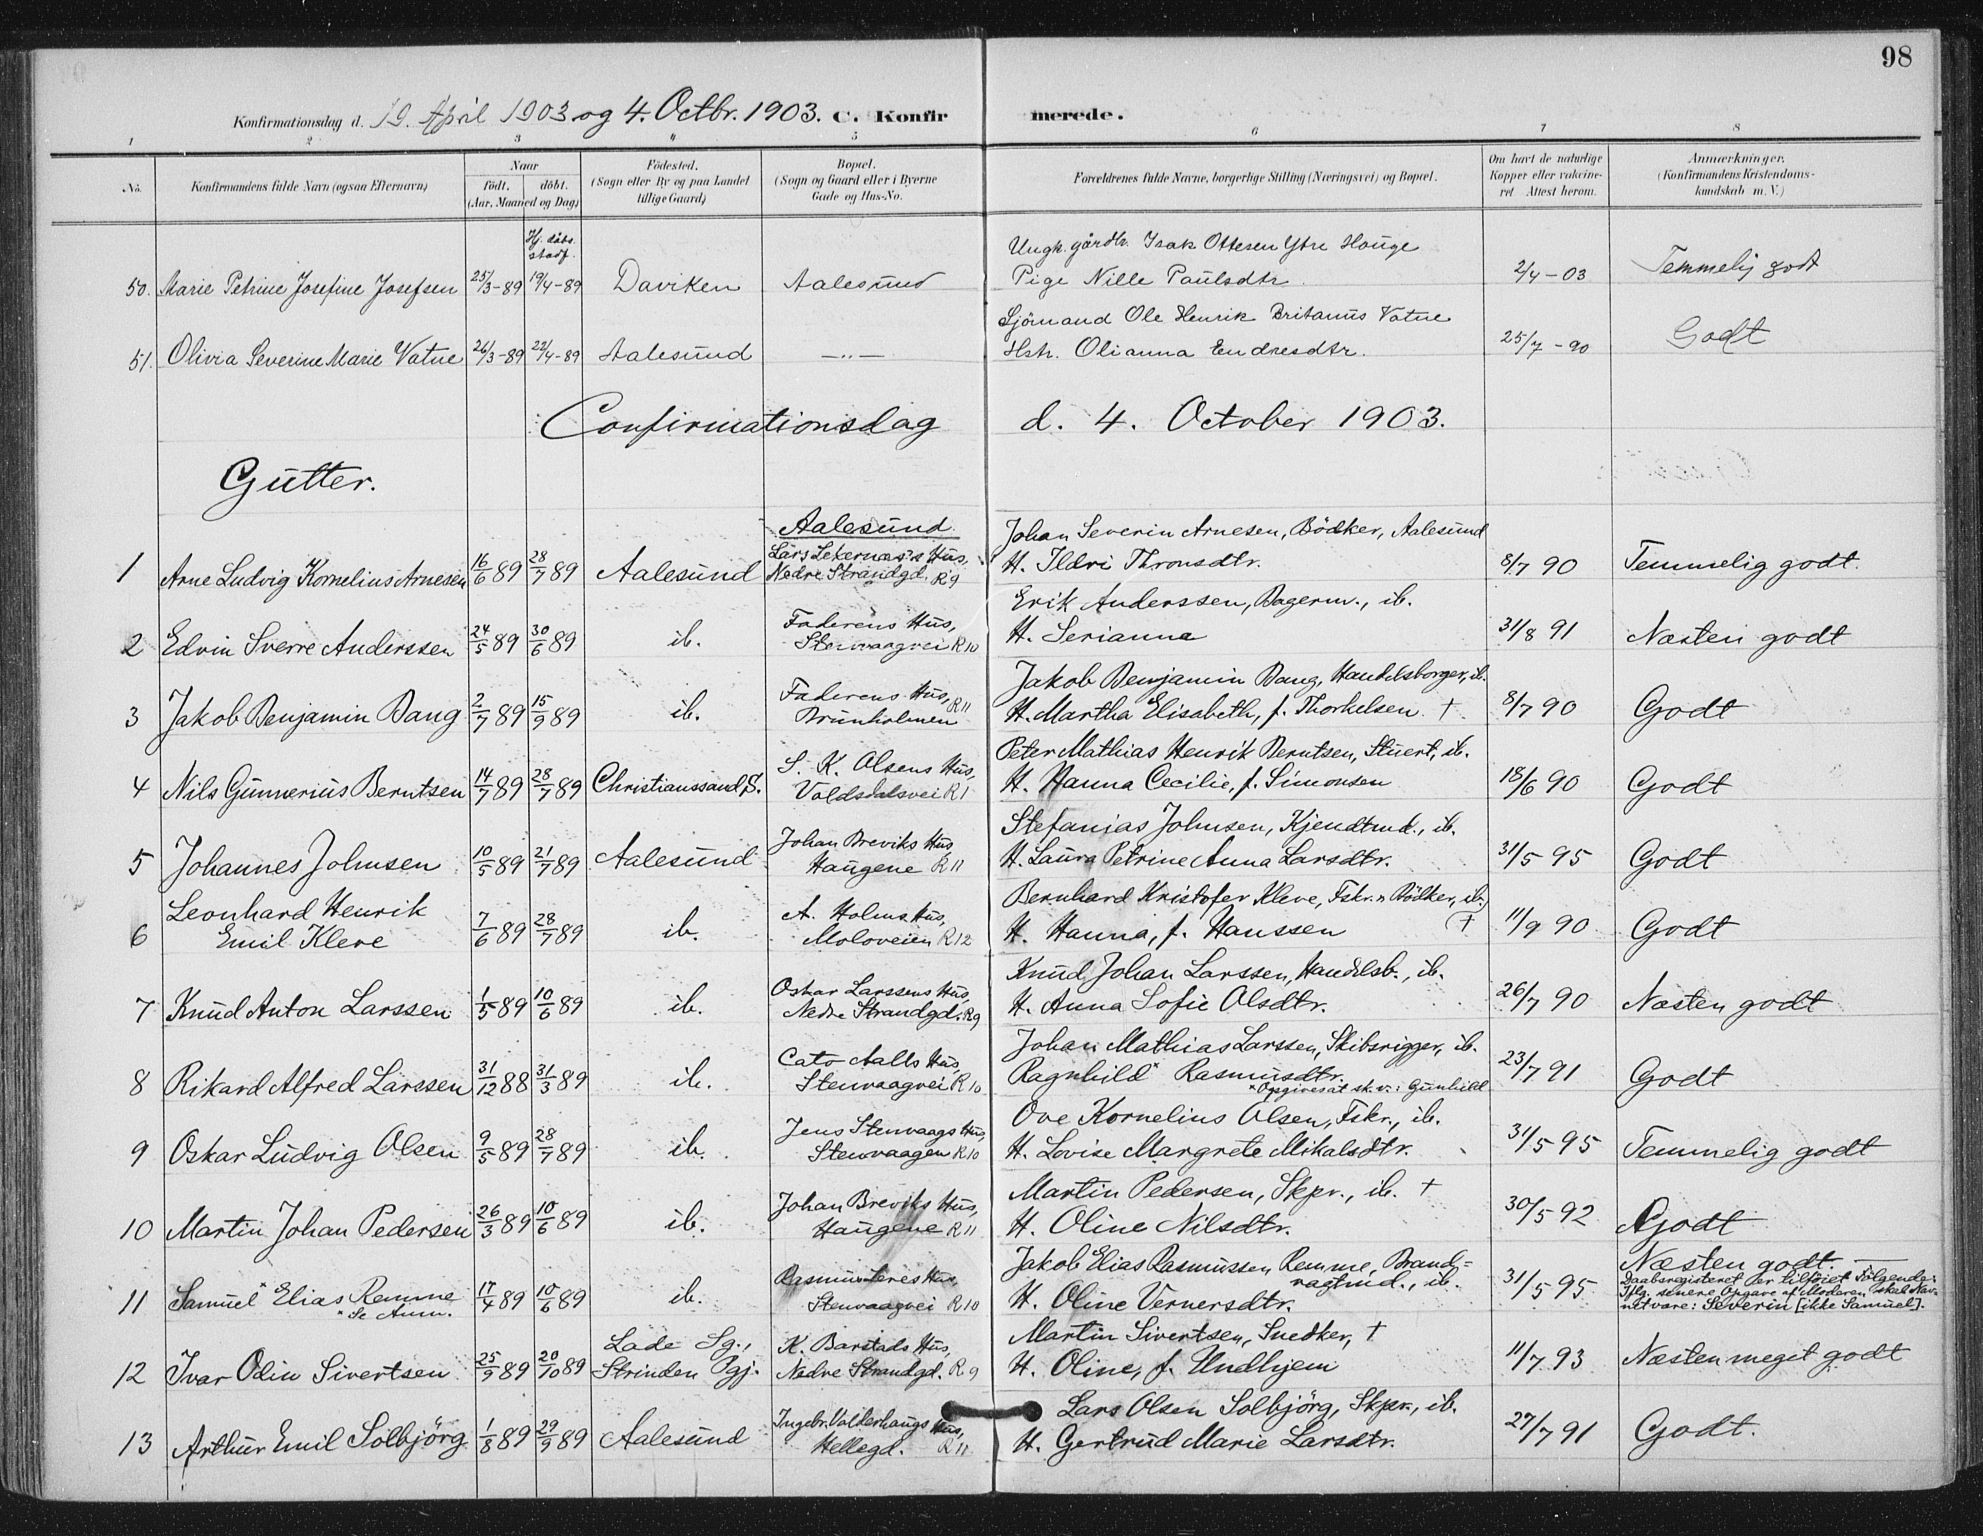 98
Konfirmationsdag d. 19. April 1903 og 4. Octbr. 1903. C. Konfirmerede.
1 2 3 4 5 6 7 8
No. Konfirmandens fulde Navn (ogsaa Efternavn) Naar födt. döbt. (Aar, Maaned og Dag) Födested. (Sogn eller By og paa Landet tillige Gaard) Bopæl. (Sogn og Gaard eller i Byerne Gade og Hus-No. Forældrenes fulde Navne, borgerlige Stilling (Næringsvei) og Bopæl. Om havt de naturlige Kopper eller vakcineret Attest herom. Anmærkninger. (Konfirmandens Kristendomskundskab m. V.)
Hj. döbt. stadf. Ungk. gårdbr. Isak Ottesen Ytre Houge
50. Marie Petrine Josefine Josefsen 25/3-89 19/4-89 Daviken Aalesund Pige Nille Paulsdtr. 2/4-03 Temmelig godt
Sjömand Ole Henrik Britanus Vatne
51. Olivia Severine Marie Vatne 26/3-89 22/4-89 Aalesund —„— Hstr. Olianna Endresdtr. 25/7-90 Godt
Confirmationsdag d. 4. October 1903.
Gutter.
Aalesund. Johan Severin Arnesen, Bödker, Aalesund
Lars Lekernæs's Hus,
1 Arne Ludvig Kornelius Arnesen 16/6 89 28/7 89 Aalesund Nedre Strandgd. R9 H. Ildri Thronsdtr. 8/7 90 Temmelig godt.
Faderens Hus, Erik Anderssen, Bagerm., ib.
2 Edvin Sverre Anderssen 24/5 89 30/6 89 ib. Stenvaagvei R10 H. Serianna 31/8 91 Næsten godt
Faderens Hus, R11 Jakob Benjamin Bang, Handelsborger, ib.
3 Jakob Benjamin Bang 2/7 89 15/9 89 ib. Brunholmen H. Martha Elisabeth, f. Thorkelsen. † 8/7 90 Godt
S. K. Olsens Hus, Peter Mathias Henrik Berntsen, Stuert, ib.
4 Nils Gunnerius Berntsen 14/7 89 28/7 89 Christianssand S. Voldsdalsvei R1 H. Hanna Cecilie, f. Simonsen 18/6 90 Godt
Johan Breviks Hus Stefanias Johnsen, Kjendtmd., ib.
5 Johannes Johnsen 10/5 89 21/7 89 Aalesund Haugene R11 H. Laura Petrine Anna Larsdtr. 31/5 95 Godt
Leonhard Henrik A. Holms Hus, Bernhard Kristofer Kleve, Fskr. & Bödker, ib.
6 Emil Kleve 7/6 89 28/7 89 ib. Moloveien R12 H. Hanna, f. Hanssen † 11/9 90 Godt
Oskar Larssens Hus, Knud Johan Larssen, Handelsb., ib.
7 Knud Anton Larssen 1/5 89 10/6 89 ib. Nedre Strandgd. R9 H. Anna Sofie Olsdtr. 26/7 90 Næsten godt
Cato Aalls Hus, Johan Mathias Larssen, Skibsrigger, ib.
8 Rikard Alfred Larssen 31/12 88 31/3 89 ib. Stenvaagvei R10 Ragnhild* Rasmusdtr. 23/7 91 Godt
*Opgives at sk. v.: Gunhild
Jens Stenvaags Hus, Ove Kornelius Olsen, Fskr., ib.
9 Oskar Ludvig Olsen 9/5 89 28/7 89 ib. Stenvaagen R10 H. Lovise Margrete Mikalsdtr. 31/5 95 Temmelig godt
Johan Breviks Hus, Martin Pedersen, Skpr., ib. †
10 Martin Johan Pedersen 26/3 89 10/6 89 ib. Haugene R11 H. Oline Nilsdtr. 30/5 92 Godt
Jakob Elias Rasmussen Remme, Brandvagtmd., ib. Næsten godt. —
11 Samuel* Elias Remme 17/4 89 10/6 89 ib. Stenvaagvei R10 H. Oline Vernersdtr. 31/5 95 Daabsregisteret er tilföiet Fölgende: Iflg. senere Opgave af Moderen skal Navnet være: Severin [ikke Samuel].
*Se Anm.
Lade Sg., K. Barstads Hus, Martin Sivertsen, Snedker, †
12 Ivar Odin Sivertsen 25/9 89 20/10 89 Strinden Pgj. Nedre Strandgd. R9 H. Oline, f. Undhjem 11/7 93 Næsten meget godt
Ingebr. Valderhaugs Hus, Lars Olsen Solbjörg, Skpr., ib.
13 Arthur Emil Solbjörg 1/8 89 29/9 89 Aalesund Hellegd. R11 H. Gertrud Marie Larsdtr. 27/7 91 Godt.